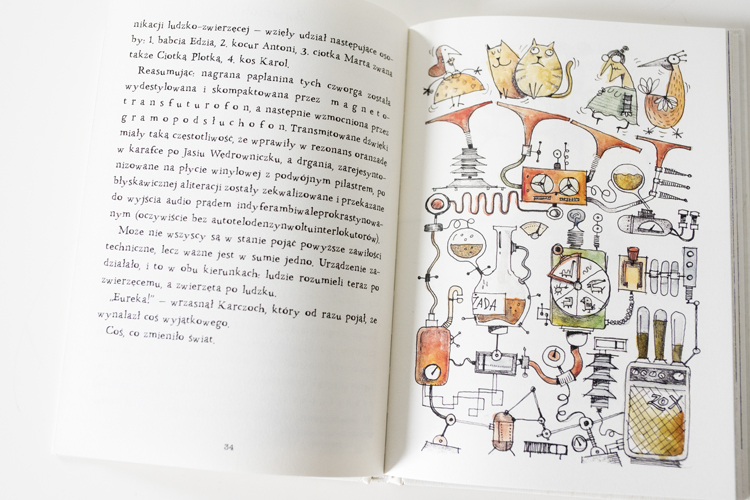 nikacji ludzko-zwierzęcej – wzięły udział następujące oso-
by: 1, babcia Edzia, 2, kocur Antoni, 3. ciotka Marta zwana
także Ciotka Plotka, 4, kos Karol.
Reasumując: nagrana paplanina tych czworga została
wydestylowana i skompaktowana przez magneto-
transfuturofon, a następnie wzmocniona przez
gramopodsłuchofon. Transmitowane dźwięki
miały taką częstotliwość, że wprawiły w rezonans oranżadę
w karafce po Jasiu Wędrowniczku, a drgania, zarejestro-
nizowane na płycie winylowej z podwójnym pilastrem, po
błyskawicznej aliteracji zostały zekwalizowane i przekazane
do wyjścia audio prądem indyferambiwaleprokrastynowa-
nym (oczywiście bez autotelodenzynwoltuinterlokutorów).
Może nie wszyscy są w stanie pojąć powyższe zawiłości
techniczne, lecz ważne jest w sumie jedno. Urządzenie za-
działało, i to w obu kierunkach: ludzie rozumieli teraz po
zwierzęcemu, a zwierzęta po ludzku.
„Eureka!” – wrzasnął Karczoch, który od razu pojął, że
wynalazł coś wyjątkowego.
Coś, co zmieniło świat.
34
ŻADA
ZOX